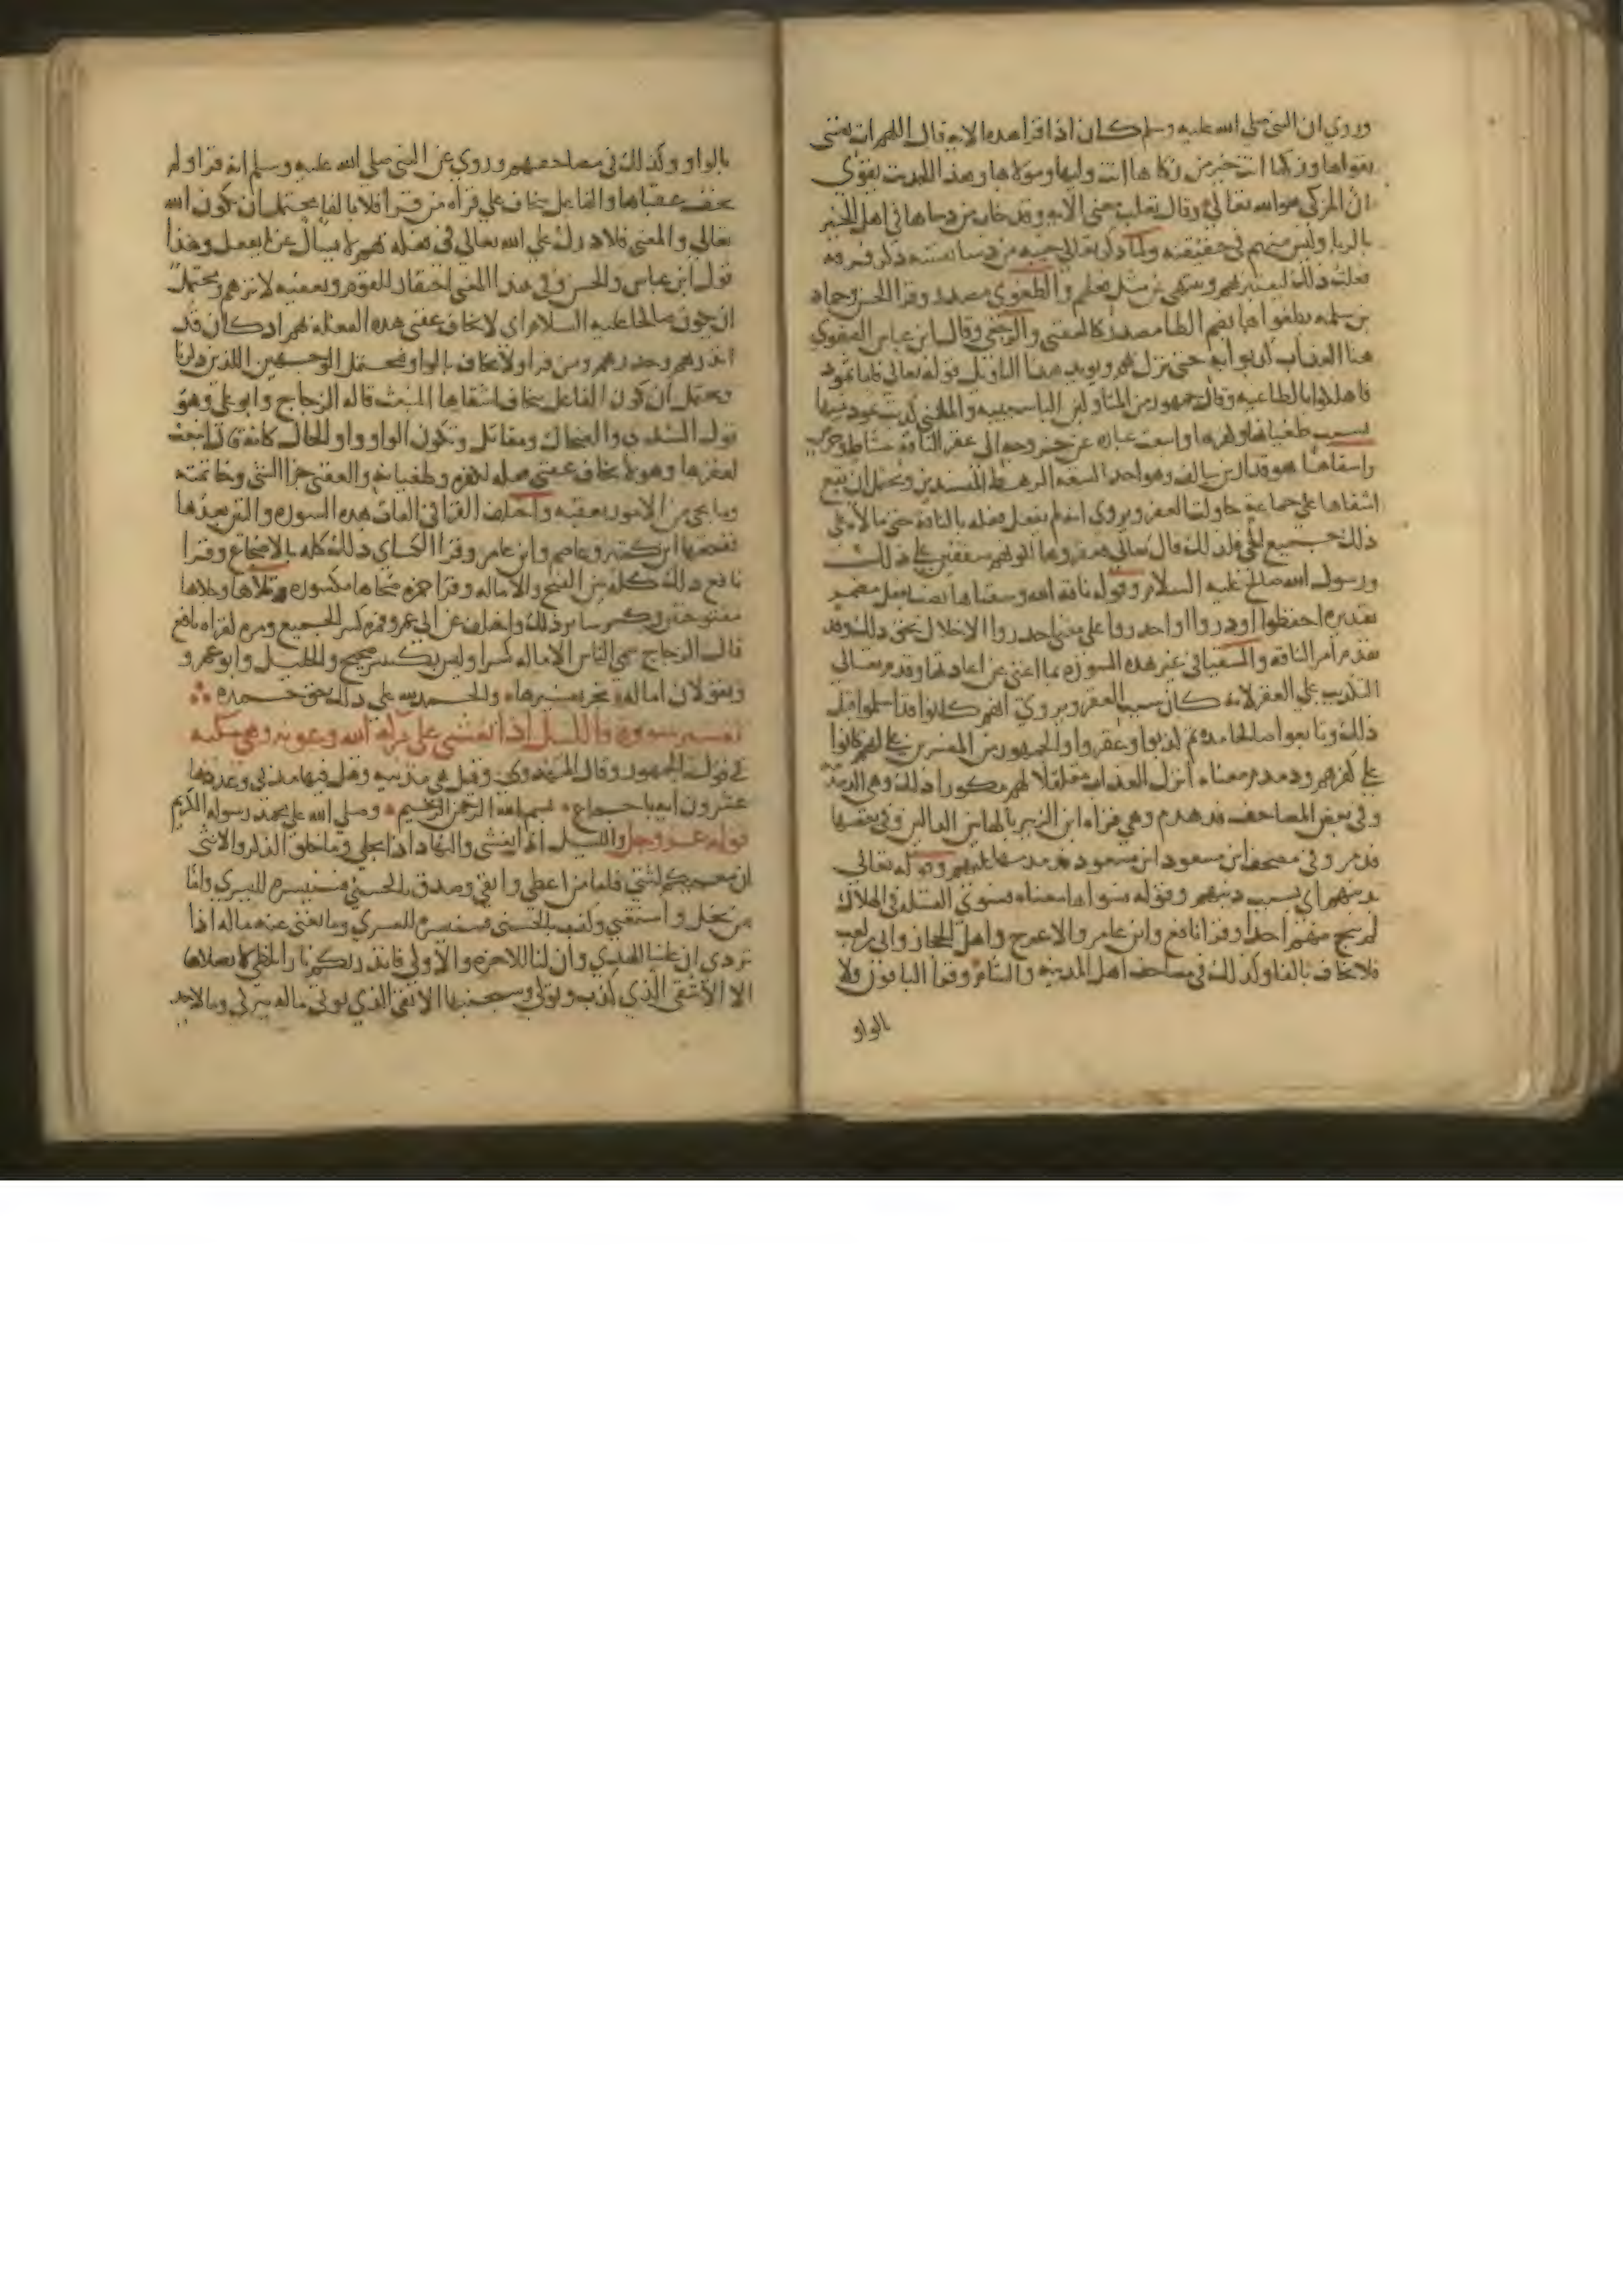 وروي ان النبي صلي الله عليه وسلم كان اذا قرا هذه الاية قال اللهم ات نفسي
تقواها وزكها انت خير من زكاها انت وليها ومولاها وهذا الحديث يقوي
ان المزكي هو الله تعالي وقال ثعلب معني الاية وقد خاب من دساها في اهل الخير
بالريا وليس منهم في حقيقته ولما ذكر تعالي خيبة من دسا نفسه ذكر فرقة
فعلت ذلك ليعتبر بهم وينتهي عن مثل فعلهم والطغوي مصدر وقرا الحسن وحماد
بن سلمه بطغواها بضم الطا مصدر كالعقبي والرجعي وقال ابن عباس الطغوي
هنا العذاب كذبوا به حتي نزل بهم ويويد هذا التاويل قوله تعالي فاما ثمود
فاهلكوا بالطاغيه وقال جمهور من المتاولين البا سببيه والمعني كذبت ثمود نبيها
بسبب طغيانها وكفرها وانبعث عباره عن خروجه الي عقر الناقة بنشاط وحرص
واشقاها هو قدار بن سالف وهو احد التسعة الرهط المفسدين ويحتمل ان يقع
اشقاها علي جماعة حاولت العقر ويروي انه لم يفعل فعله بالناقة حتي مالاه علي
ذلك جميع الحي فلذلك قال تعالي فعقروها لكونهم متفقين علي ذلك
ورسول الله صالح عليه السلام وقوله ناقة الله وسقياها نصب بفعل مضمر
تقديره احفظوا او ذروا او احذروا علي معني احذروا الاخلال بحق ذلك وقد
تقدم امر الناقه والسقيا في غير هذه السورة بما اغني عن اعادته وقدم تعالي
التكذيب علي العقر لانه كان سبب العقر ويروي انهم كانوا قد اسلموا قبل
ذلك وتابعوا صالحا مده ثم كذبوا وعقروا والجمهور من المفسرين علي انهم كانوا
علي كفرهم ودمدم معناه انزل العذاب مقلقلا لهم مكررا ذلك وهي الدمدمة
وفي بعض المصاحف فدهدم وهي قراة ابن الزبير بالها بين الدالين وفي بعضها
فدمر وفي مصحف ابن مسعود فدمدمها عليهم وقوله تعالي
بذنبهم اي بسبب ذنبهم وقوله فسواها معناه فسوي القبيله في الهلاك
لم ينج منهم احدا وقرا نافع وابن عامر والاعرج واهل الحجاز وابي بن كعب
فلا يخاف بالفا وكذلك في مصاحف اهل المدينه والشام وقرا الباقون ولا
بالواو
بالواو وكذلك في مصاحفهم وروي عن النبي صلي الله عليه وسلم انه قرا ولم
يخف عقباها والفاعل بيخاف علي قراة من قرا فلا بالفا يحتمل ان يكون الله
تعالي والمعني فلا درك علي الله تعالي في فعله بهم لا يسال عما يفعل وهذا
قول ابن عباس والحسن وفي هذا المعني احتقار للقوم وتعفيه لاثرهم ويحتمل
ان يكون صالحا عليه السلام اي لا يخاف عقبي هذه الفعله بهم اذ كان قد
انذرهم وحذرهم ومن قرا ولا يخاف بالواو فيحتمل الوجهين اللذين ذكرنا
ويحتمل ان يكون الفاعل بيخاف اشقاها المنبعث قاله الزجاج وابو علي وهو
قول السدي والضحاك ومقاتل وتكون الواو واو الحال كانه قال انبعث
لعقرها وهو لا يخاف عقبي فعله لكفره وطغيانه والعقبي جزا الشي وخاتمته
وما يجي من الامور بعقبه واختلف القرا في الفات هذه السورة والتي بعدها
ففتحها ابن كثير وعاصم وابن عامر وقرا الكساي ذلك كله بالاضجاع وقرا
نافع ذلك كله بين الفتح والاماله وقرا حمزه ضحاها مكسورة وتلاها وطحاها
مفتوحتين وكسر ساير ذلك واختلف عن ابي عمرو فمرة كسر الجميع ومرة كقراة نافع
قال الزجاج سمي الناس الامالة كسرا وليس بكسر صحيح والخليل وابو عمرو
يقولان امالة نجز تفسيرها والحمد لله علي ذلك حق حمده
تفسير سورة والليل اذا يغشي علي بركة الله وعونه وهي مكيه
في قول الجمهور وقال المهدوي وقيل هي مدنيه وقيل فيها مدني وعددها
عشرون ايه باجماع بسم الله الرحمن الرحيم وصلي الله علي محمد رسوله الكريم
قوله عز وجل والليل اذا يغشي والنهار اذا تجلي وما خلق الذكر والانثي
ان سعيكم لشتي فاما من اعطي واتقي وصدق بالحسني فسنيسره لليسري واما
من بخل واستغني وكذب بالحسني فسنيسره للعسري وما يغني عنه ماله اذا
تردي ان علينا للهدي وان لنا للاخرة والاولي فانذرتكم نارا تلظي لا يصلاها
الا الاشقي الذي كذب وتولي وسيجنبها الاتقي الذي يوتي ماله يتزكي وما لاحد